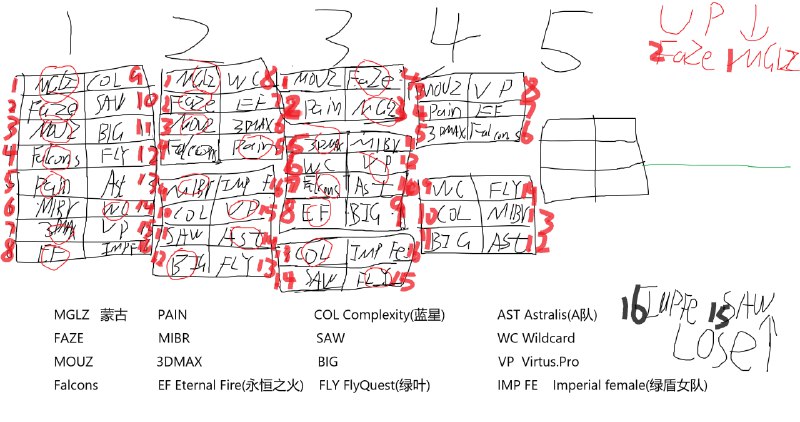 1 2 3 4 5
U P ↓
2 FaZe 1 MGLZ
1 MGLZ COL 9
2 FaZe SAW 10
3 MOUZ BIG 11
4 Falcons FLY 12
5 Pain Ast 13
6 MIBR WC 14
7 3DMAX VP 15
8 EF IMPFE
1 MGLZ WC 8
2 FaZe EF 7
3 MOUZ 3DMAX 6
4 Falcons Pain 5
9 MIBR IMP F 16
10 COL VP 15
11 SAW Ast 14
12 BIG FLY 13
1 MOUZ FaZe
2 Pain MGLZ 3
5 3DMAX MIBR
6 WC VP 12
7 Falcons Ast 10
8 EF BIG 9
COL IMP Fe 16
14 SAW FLY 15
MOUZ VP 8
4 Pain EF 7
5 3DMAX Falcons 6
9 WC FLY 14
10 COL MIBR 13
11 BIG Ast 12
16 IMPFE 15 SAW
LOSE ↑
MGLZ 蒙古 PAIN COL Complexity(蓝星) AST Astralis(A队)
FAZE MIBR SAW WC Wildcard
MOUZ 3DMAX BIG VP Virtus.Pro
Falcons EF Eternal Fire(永恒之火) FLY FlyQuest(绿叶) IMP FE Imperial female(绿盾女队)